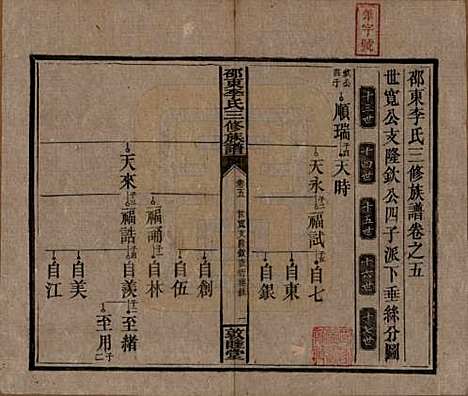 邵東李氏三修族譜卷之五
世寬公支隆欽公四子派下垂絲分圖
十三世 十四世 十五世 十六世 十七世
順瑞
天時
天永
福試
自七
自東
自銀
邵東李氏三修族譜
卷五
二
敦睦堂
自創
自伍
福誦
自林
天來
福誥
自羨
至緒
至用
自美
自江